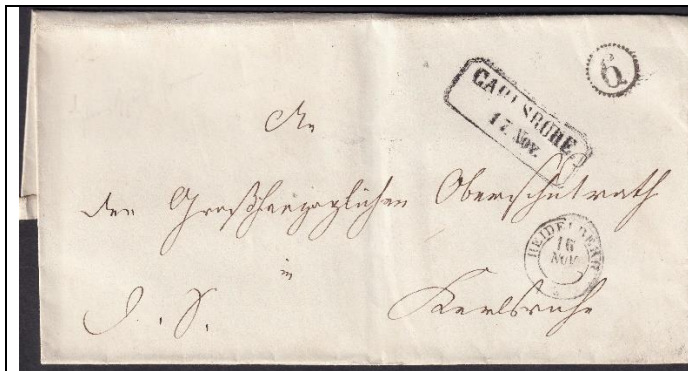 6
CARLSRUHE
17. Nov.
An
den Großherzoglichen Oberschulrath
in
HEIDELBERG
16
NOV.
D. S.
Karlsruhe